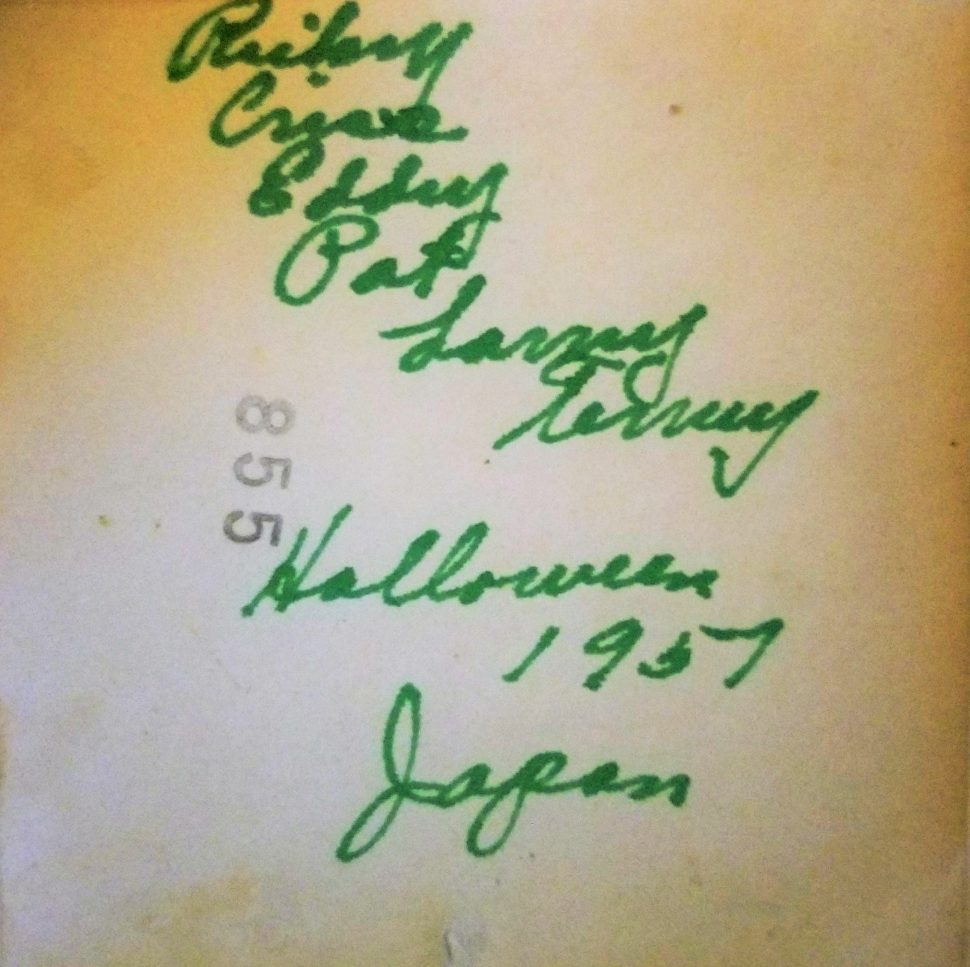 Eddy
Pat
Larry
Terry
855
Halloween
1957
Japan